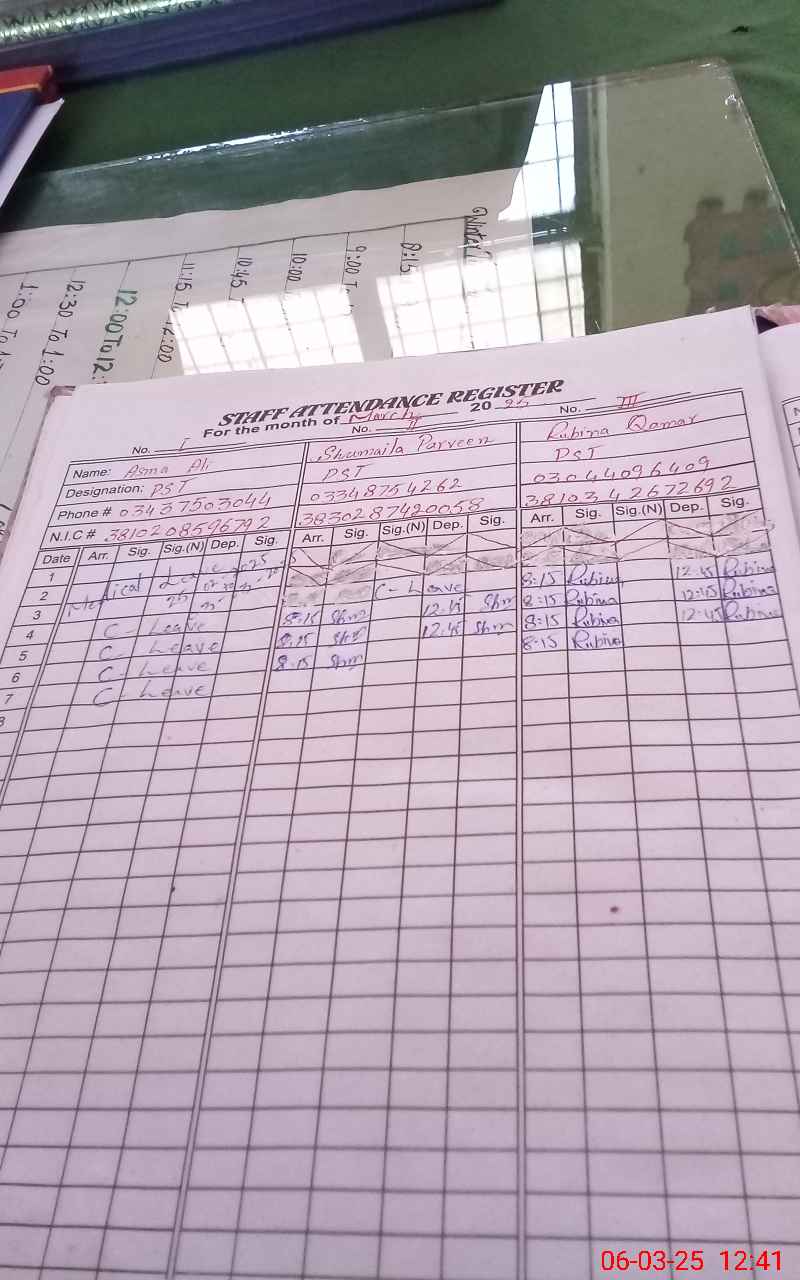 Winter
8:15
9:00
10:00
10:45
11:15
12:00
12:00 To 12:
12:30 To 1:00
1:00 To
STAFF ATTENDANCE REGISTER
For the month of March 2025
No. I No. II No. III
Name: Asma Ali Shumaila Parveen Rubina Qamar
Designation: PST PST PST
Phone # 03437503044 03348754262 03044096409
N.I.C # 3810208596792 3830287420058 3810342672692
Date Arr. Sig. Sig.(N) Dep. Sig. Arr. Sig. Sig.(N) Dep. Sig. Arr. Sig. Sig.(N) Dep. Sig.
1
2 Medical Leave C-Leave 8:15 Rubina 12:45 Rubina
3 8:15 Shm 12:45 Shm 8:15 Rubina 12:45 Rubina
4 C-Leave 8:15 Shm 12:45 Shm 8:15 Rubina 12:45 Rubina
5 C-Leave 8:15 Shm 8:15 Rubina
6 C-Leave
7 C-Leave
8
06-03-25 12:41